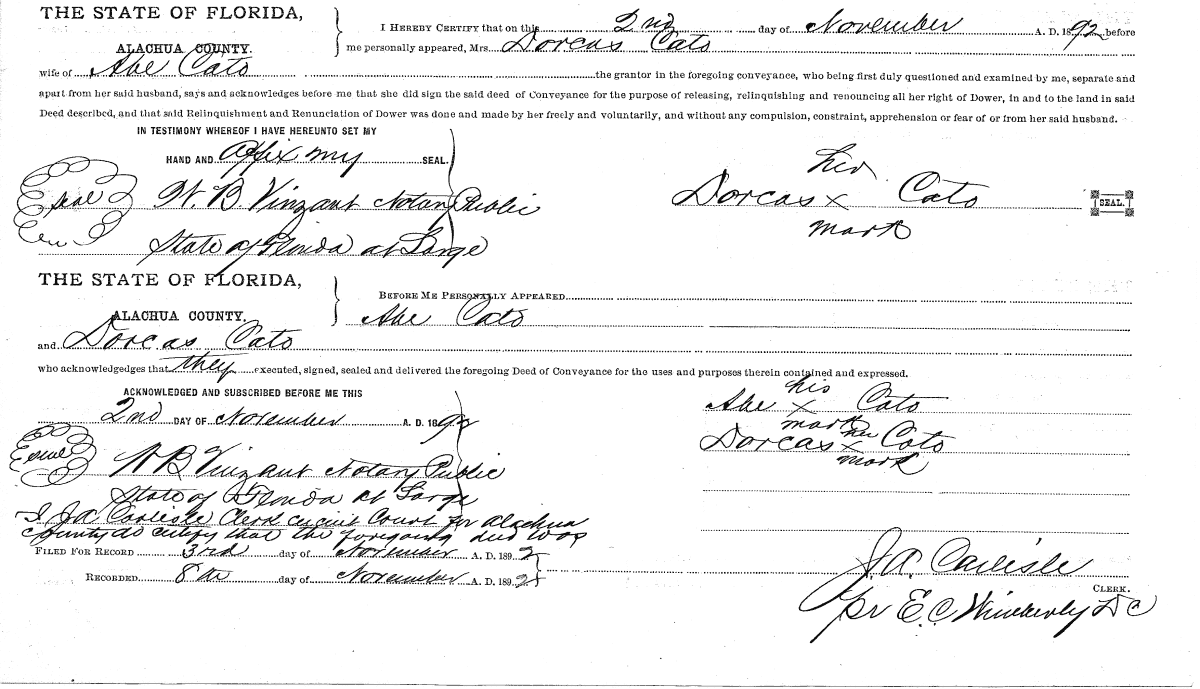 THE STATE OF FLORIDA,
ALACHUA COUNTY.
I HEREBY CERTIFY that on this 2nd day of November A. D. 1892 before
me personally appeared, Mrs. Dorcas Cato
wife of Abe Cato the grantor in the foregoing conveyance, who being first duly questioned and examined by me, separate and
apart from her said husband, says and acknowledges before me that she did sign the said deed of Conveyance for the purpose of releasing, relinquishing and renouncing all her right of Dower, in and to the land in said
Deed described, and that said Relinquishment and Renunciation of Dower was done and made by her freely and voluntarily, and without any compulsion, constraint, apprehension or fear of or from her said husband.
IN TESTIMONY WHEREOF I HAVE HEREUNTO SET MY
HAND AND affix my SEAL.
Seal W. B. Vinzant Notary Public
State of Florida at Large
her
Dorcas x Cato SEAL.
mark
THE STATE OF FLORIDA,
ALACHUA COUNTY.
BEFORE ME PERSONALLY APPEARED
Abe Cato
and Dorcas Cato
who acknowledges that they executed, signed, sealed and delivered the foregoing Deed of Conveyance for the uses and purposes therein contained and expressed.
ACKNOWLEDGED AND SUBSCRIBED BEFORE ME THIS
2nd DAY OF November A. D. 1892
Seal W B Vinzant Notary Public
State of Florida at Large
his
Abe x Cato
mark her
Dorcas x Cato
mark
I J A Carlisle Clerk Circuit Court for Alachua
County do certify that the foregoing deed was
FILED FOR RECORD 3rd day of November A. D. 1892
RECORDED 8th day of November A. D. 1892
J. A. Carlisle
CLERK.
pr E. C. Wimberly D C